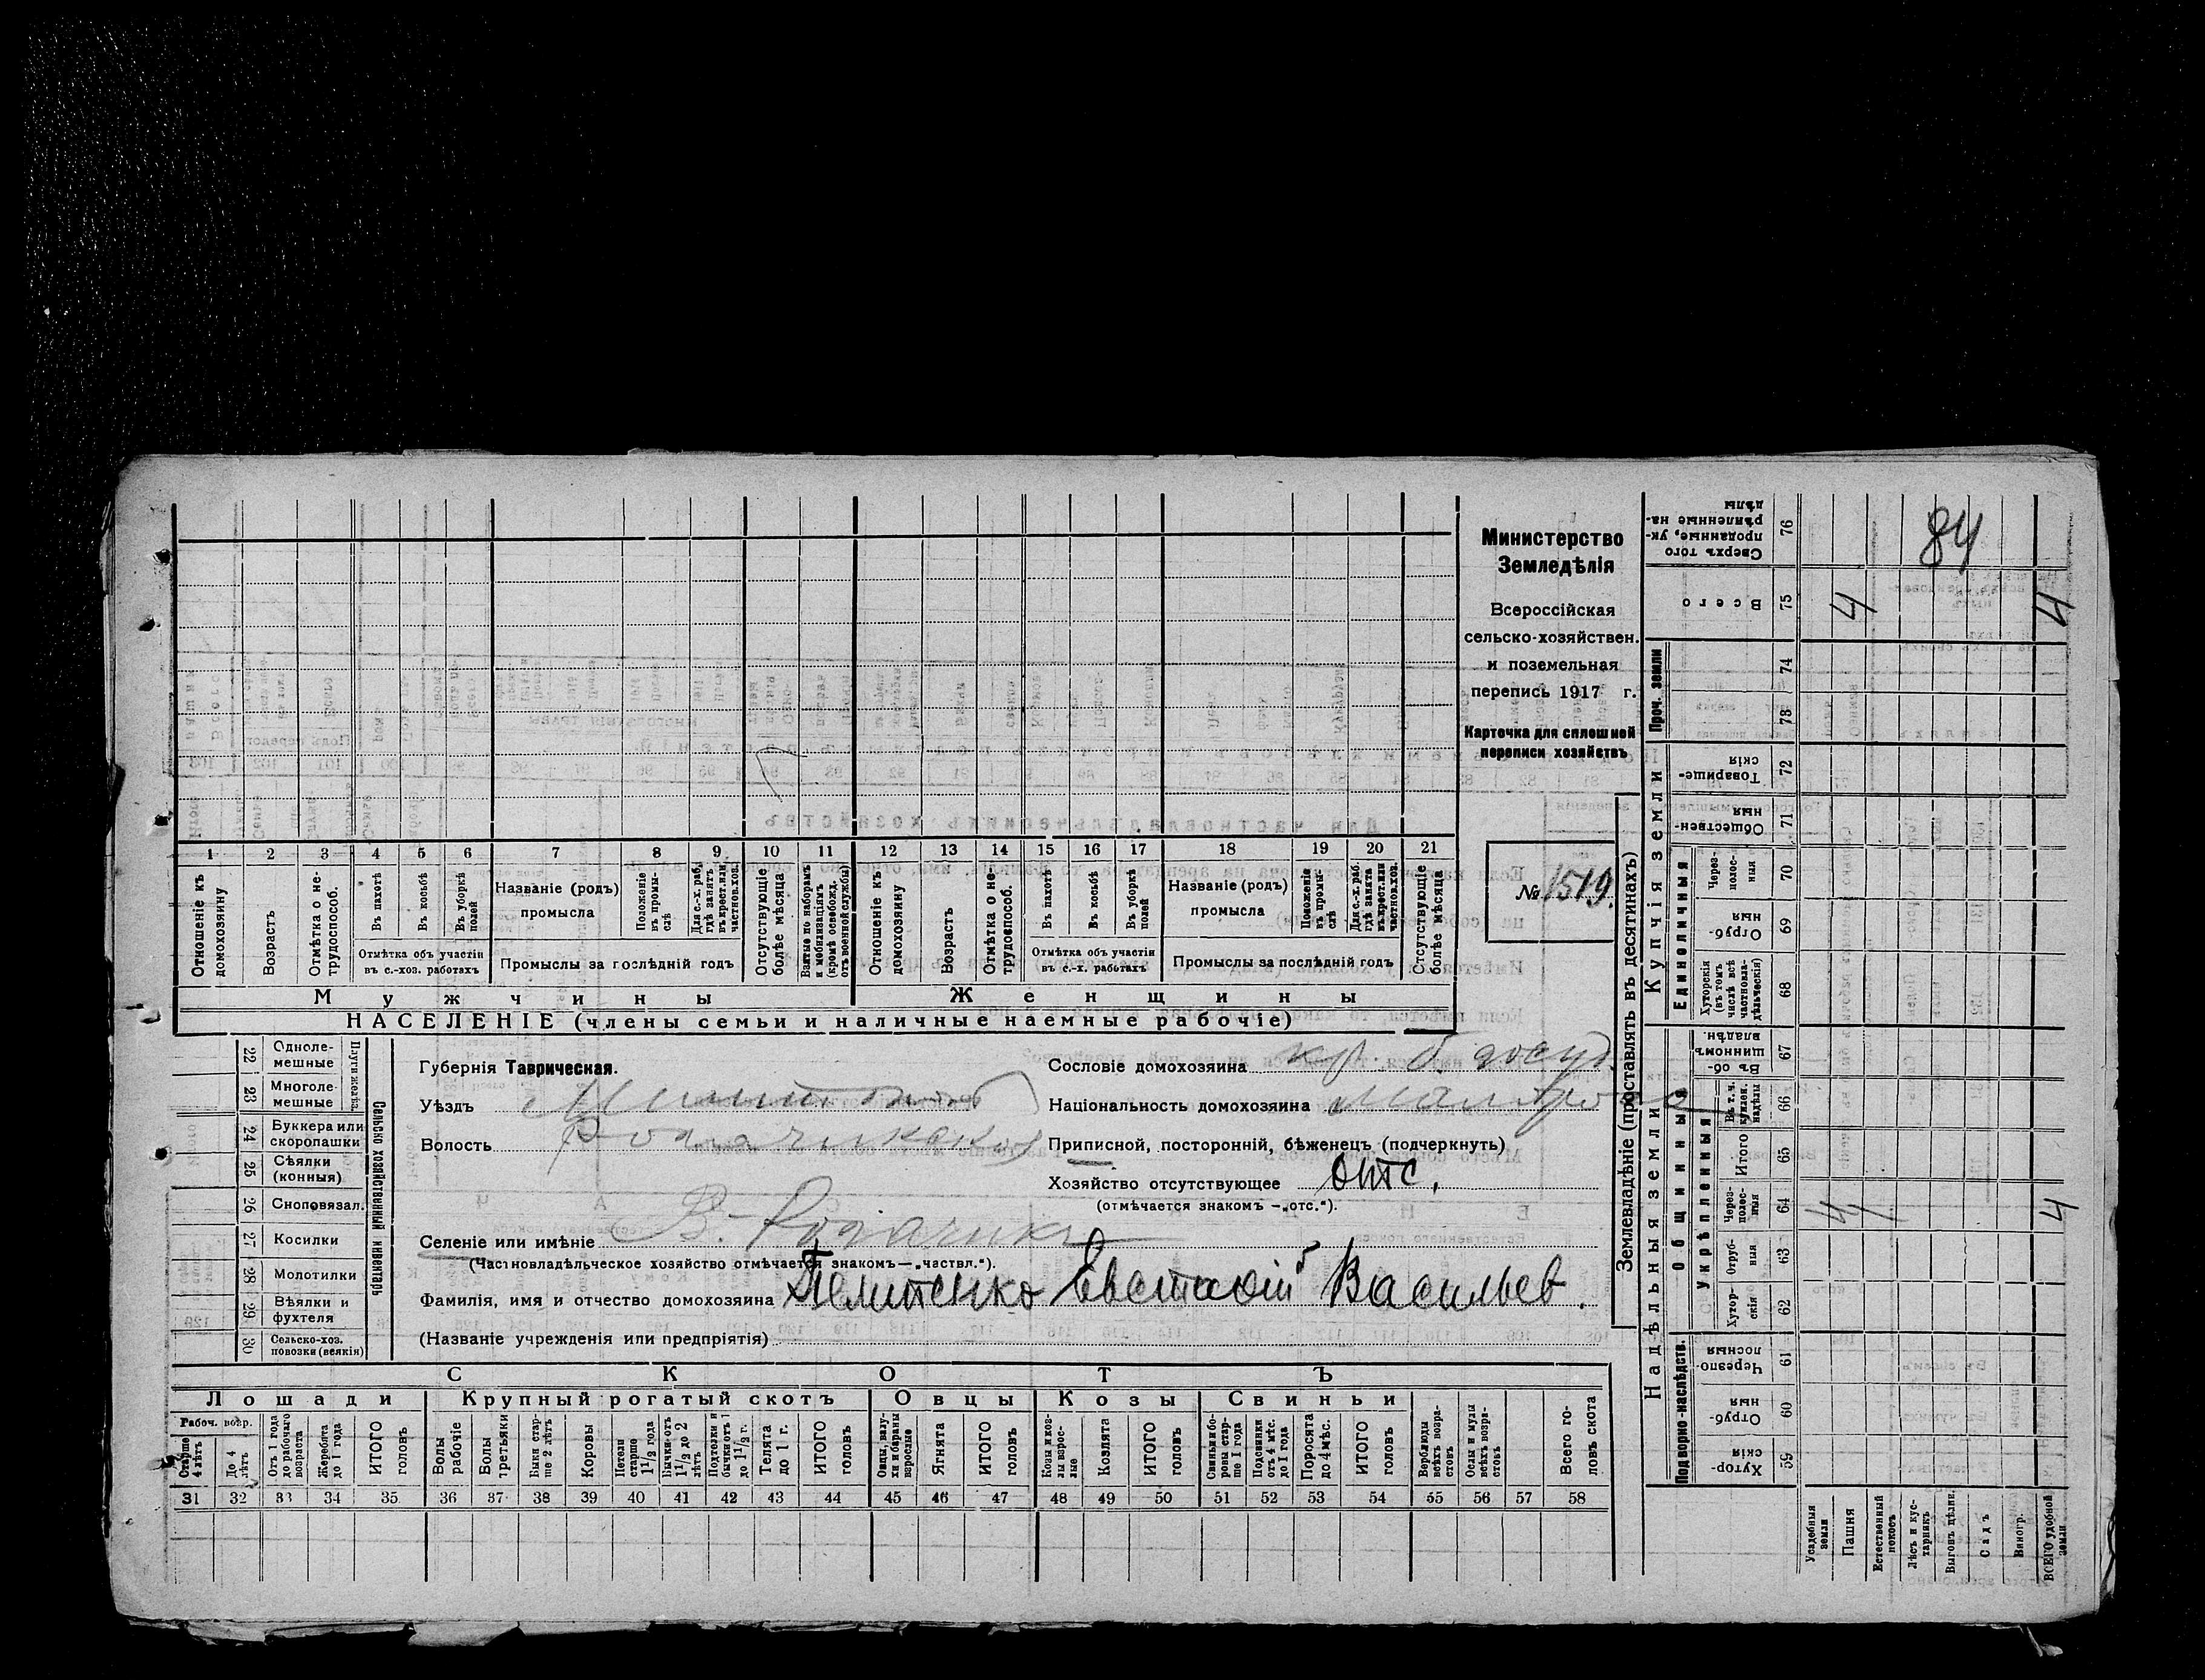 Министерство
Земледѣлія
Всероссійская
сельско-хозяйствен.
и поземельная
перепись 1917 г.
Карточка для сплошной
переписи хозяйствъ
№ 1519.
84
1 2 3 4 5 6 7 8 9 10 11 12 13 14 15 16 17 18 19 20 21
Отношеніе къ домохозяину
Возрастъ
Отмѣтка о не-трудоспособ.
Въ пахотѣ
Въ косьбѣ
Въ уборкѣ полей
Отмѣтка объ участіи
въ с.-хоз. работахъ
Названіе (родъ)
промысла
Положеніе въ промы-слѣ
Для с.-х. раб. гдѣ занятъ въ крест. или частнов. хоз.
Промыслы за послѣдній годъ
Отсутствующіе болѣе мѣсяца
Взятые по наборамъ и мобилизаціямъ (кромѣ освобожд. отъ военной службы)
Отношеніе къ домохозяину
Возрастъ
Отмѣтка о не-трудоспособ.
Въ пахотѣ
Въ косьбѣ
Въ уборкѣ полей
Отмѣтка объ участіи
въ с.-х. работахъ
Названіе (родъ)
промысла
Положеніе въ промы-слѣ
Для с.-х. раб. гдѣ занята въ крест. или частнов. хоз.
Промыслы за послѣдній годъ
Отсутствующіе болѣе мѣсяца
Мужчины
Женщины
НАСЕЛЕНІЕ (члены семьи и наличные наемные рабочіе)
Сельско хозяйственный инвентарь
Плуги желѣз.
22 Одноле-мешные
23 Многоле-мешные
24 Буккера или скоропашки
25 Сѣялки (конныя)
26 Сноповязал.
27 Косилки
28 Молотилки
29 Вѣялки и фухтеля
30 Сельско-хоз. повозки (всякія)
Губернія Таврическая.
Уѣздъ
Волость
Селеніе или имѣніе В. Рогачикъ
(Частновладѣльческое хозяйство отмѣчается знакомъ—„частвл.“).
Фамилія, имя и отчество домохозяина Евстафій Васильев.
(Названіе учрежденія или предпріятія)
Сословіе домохозяина кр. б. госуд.
Національность домохозяина
Приписной, посторонній, бѣженецъ (подчеркнуть)
Хозяйство отсутствующее отс.
(отмѣчается знакомъ —„отс.“).
СКОТЪ
Лошади
Крупный рогатый скотъ
Овцы
Козы
Свиньи
Рабоч. возр.
Старше 4 лѣтъ
До 4 лѣтъ
Отъ 1 года до рабочаго возраста
Жеребята до 1 года
ИТОГО головъ
Волы рабочіе
Волы третьяки
Быки стар-ше 2 лѣтъ
Коровы
Нетели старше 1½ года
Бычки отъ 1½ до 2 лѣтъ
Подтелки и бычки отъ 1 до 1½ г.
Телята до 1 г.
ИТОГО головъ
Овцы, валу-хи и бараны взрослые
Ягнята
ИТОГО головъ
Козы и коз-лы взрос-лые
Козлята
ИТОГО головъ
Свиньи и бо-ровы стар-ше 1 года
Подсвинки отъ 4 мѣс. до 1 года
Поросята до 4 мѣс.
ИТОГО головъ
Верблюды всѣхъ возра-стовъ
Ослы и мулы всѣхъ возра-стовъ
Всего го-ловъ скота
31 32 33 34 35 36 37 38 39 40 41 42 43 44 45 46 47 48 49 50 51 52 53 54 55 56 57 58
Землевладѣніе (проставлять въ десятинахъ)
Надѣльныя земли
Купчія земли
Проч. земли
Подворно-наслѣдств.
Общинныя
Укрѣпленныя
Единоличныя
59 Хутор-скія
60 Отруб-ныя
61 Черезпо-лосныя
62 Хутор-скія
63 Отруб-ныя
64 Через-полос-ныя
65 Итого
66 Въ т. ч. куплен. надѣлы
67 Въ об-щинномъ владѣн.
68 Хуторскія (въ томъ числѣ всѣ частновла-дѣльческія)
69 Отруб-ныя
70 Через-полос-ныя
71 Обществен-ныя
72 Товарище-скія
73
74
75 Всего
76 Сверхъ того проданные, ук-рѣпленные на-дѣлы
Усадебныя земли
Пашня
Естественный покосъ
Лѣсъ и ку-старникъ
Выгонъ цѣлин.
Садъ
Виногр.
ВСЕГО удобной земли
4 4
4 4